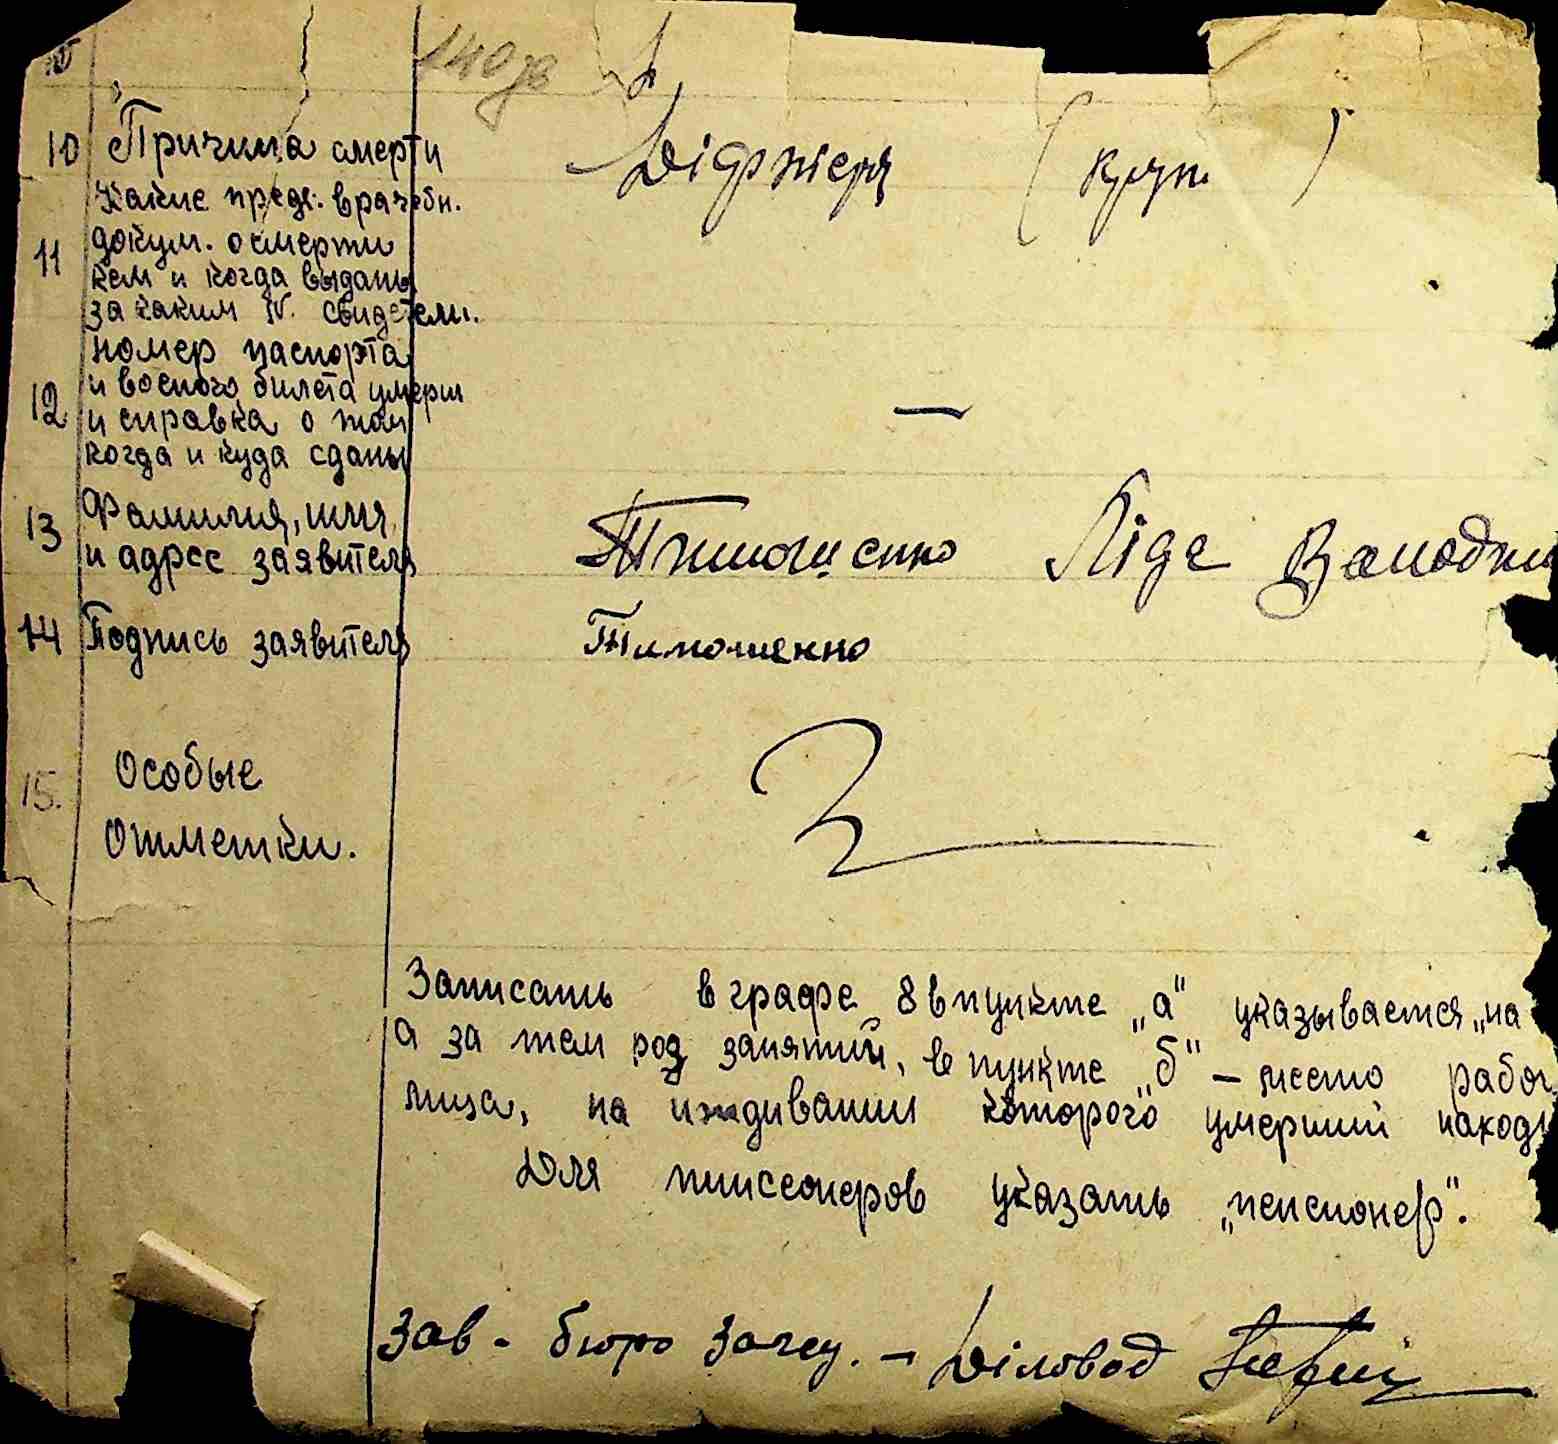 10 Причина смерти Діфтерія (круп)
Какие предс. врачебн.
11 докум. о смерти
кем и когда выданы
за каким №. свидетели.
номер паспорта
и военого билета умерш
12 и справка о том —
когда и куда сданы
13 Фамилия, имя
и адрес заявителя Тимошенко Ліда
14 Подпись заявителя Тимошенко
15. Особые
Отметки.
Записать в графе 8 в пункте „а" указывается „на
а за тем род занятий, в пункте „б" – место работ
лица, на иждивании которого умерший находи
Для пинсеонеров указать „пенсионер".
Зав - бюро загсу. – Діловод